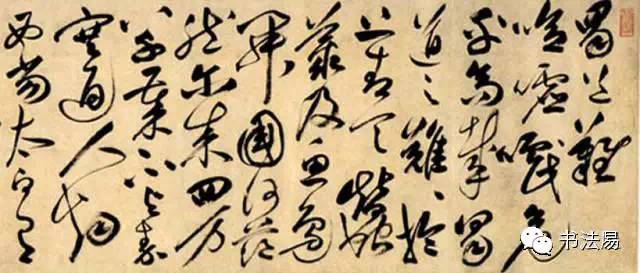 蜀道難
噫嘘嚱危
乎高哉蜀
道之難〻於
上青天蠶
叢及魚鳧
開國何茫
然尔来四万
八千歲不与秦
塞通人烟
西當太白有
书法易